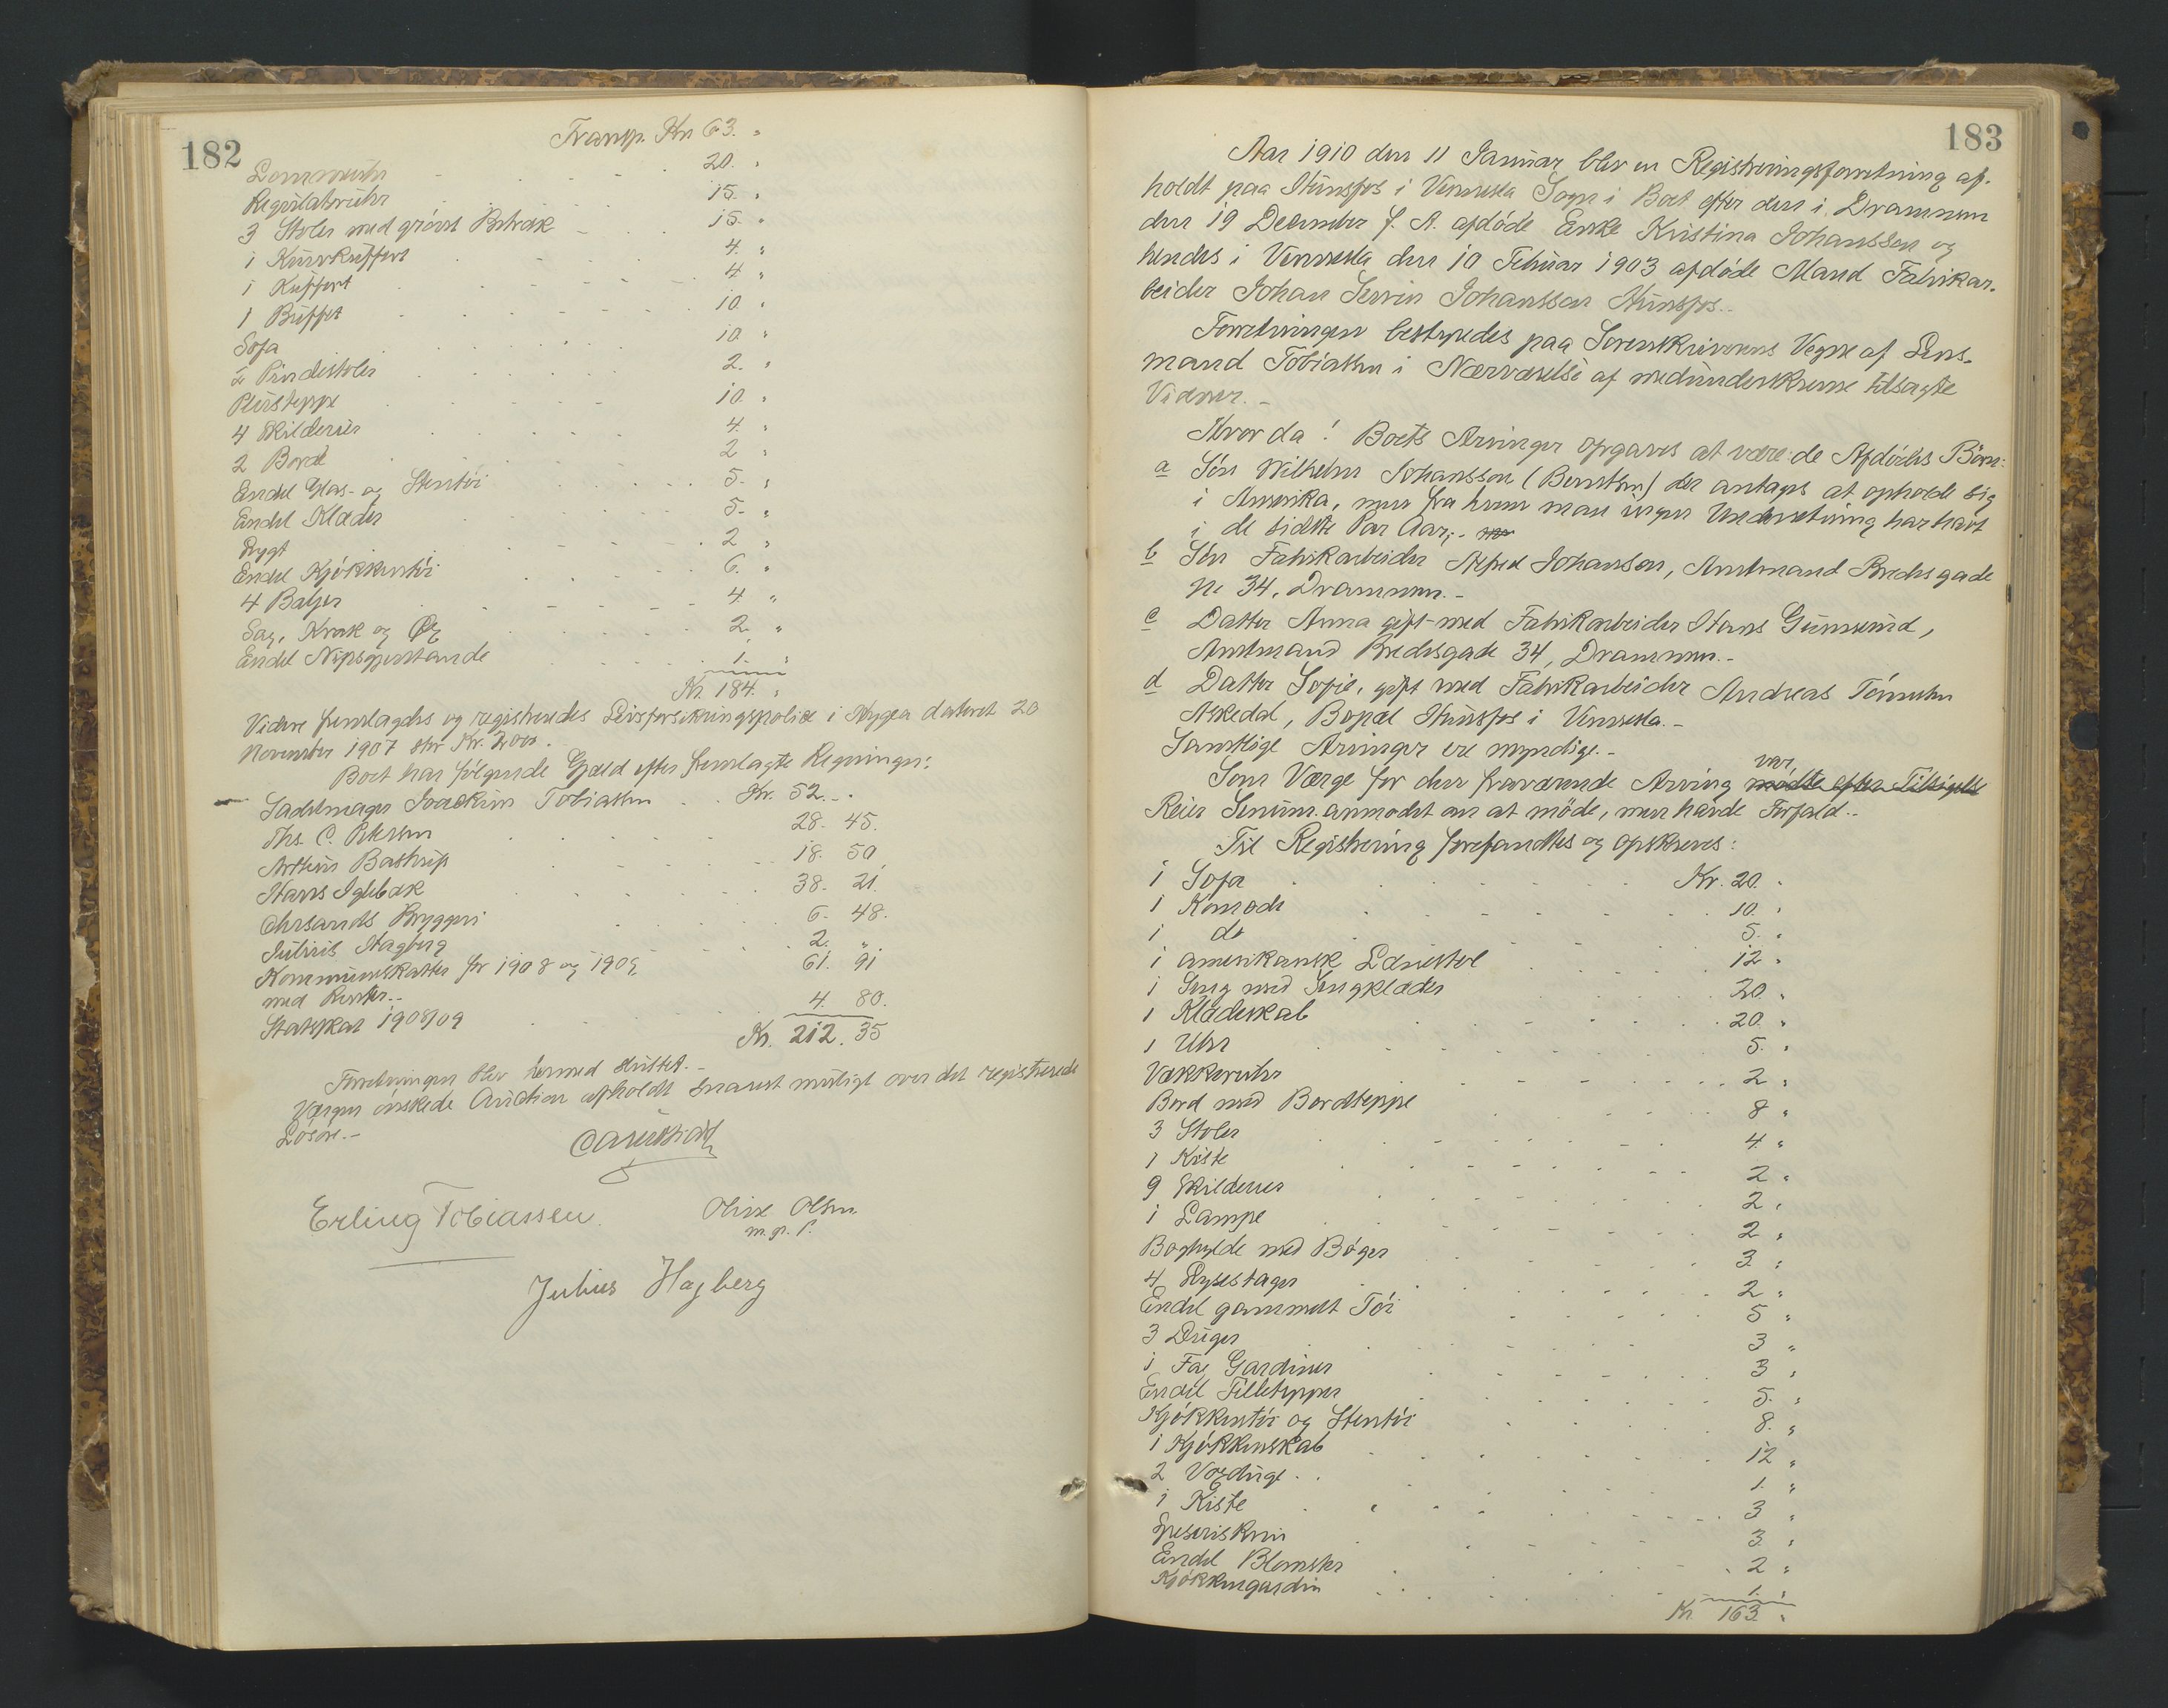 182
Transp. Kr 63. "
Lommeuhr 20. "
Regulateruhr 15. "
3 Stoler med grönt Betræk 15. "
1 Kurvkuffert 4. "
1 Kuffert 4 "
1 Buffet 10. "
Sofa 10. "
2 Pindestoler 2. "
Pluisteppe 10. "
4 Skilderier 4. "
2 Bord 2 "
Endel Glas- og Stentöi 5. "
Endel Klæder 5- "
Lygt 2 "
Endel Kjökkentöi 6. "
4 Baljer 4. "
Sag, Krak og Øx 2. "
Endel Nipsgjenstande 1. "
Kr. 184. "
Videre fremlagdes og registreredes Livsforsikringspolice i Hygea dateret 20
November 1907 stor Kr. 2000.
Boet har følgende Gjæld efter fremlagte Regninger:
Sadelmager Joackim Tobiassen Kr. 52.-.
Ths. C. Petersen 28. 45.
Arthur Bastrup 18. 50
Hans Iglebæk 38. 21.
Chrsands Bryggeri 6. 48.
Julius Hagberg 2. ".
Kommuneskatter for 1908 og 1909
med Renter.- 61. 91
Statsskat 1908/09 4. 80.
Kr. 212. 35
Forretningen blev hermed sluttet.-
Værgen önskede Auction afholdt snarest muligt over det registrerede
Lösöre.-
Erling Tobiassen.
Oline Olsen
m. p. P.
Julius Hagberg
183
Aar 1910 den 11 Januar blev en Registreringsforretning af-
holdt paa Hunsfos i Vennesla Sogn i Boet efter den i Drammen
den 19 December f. A. afdöde Enke Kristina Johansson og
hendes i Vennesla den 10 Februar 1903 afdöde Mand Fabrikar-
beider Johan Severin Johansson Hunsfos.-
Forretningen bestyredes paa Sorenskriverens Vegne af Lens-
mand Tobiassen i Nærværelse af medunderskrevne tilsagte
Vidner.-
Hvor da! Boets Arvinger opgaves at være: de Afdödes Börn:
a Sön Wilhelm Johansson (Berntsen) der antages at opholde sig
i Amerika, men fra hvem man ingen Underretning har havt
i de sidste Par Aar,-
b Sön Fabrikarbeider Alfred Johanson, Amtmand Bredesgade
No 34, Drammen.-
c Datter Anna gift med Fabrikarbeider Hans Gunnerud,
Amtmand Bredesgade 34, Drammen.-
d Datter Sofie, gift med Fabrikarbeider Andreas Tönnesen
Askedal, Bopæl Hunsfos i Vennesla.-
Samtlige Arvinger ere myndige.-
Som Værge for den fraværende Arving var mödte efter Tilsigelse
Reier Senum anmodet om at möde, men havde Forfald.-
Til Registrering forefandtes og opskreves:
1 Sofa Kr. 20. "
1 Komode 10. "
1 do 5. "
1 amerikansk Lænestol 12 "
1 Seng med Sengklæder 20. "
1 Klædeskab 20. "
1 Uhr 5. "
Vækkeruhr 2 "
Bord med Bordteppe 8 "
3 Stoler 4. "
1 Kiste 2 "
9 Skilderier 2. "
1 Lampe 2 "
Boghylde med Böger 3 "
4 Lysestager 2 "
Endel gammelt Töi 5 "
3 Duger 3 "
1 Fag Gardiner 3 "
Endel Filletepper 5. "
Kjökkentöi og Stentöi 8. "
1 Kjökkenskab 12 "
2 Voxduge 1. "
1 Kiste 3 "
Spiseriskrin 3. "
Endel Blomster 2 "
Kjökkengardin 1. "
Kr 163. "